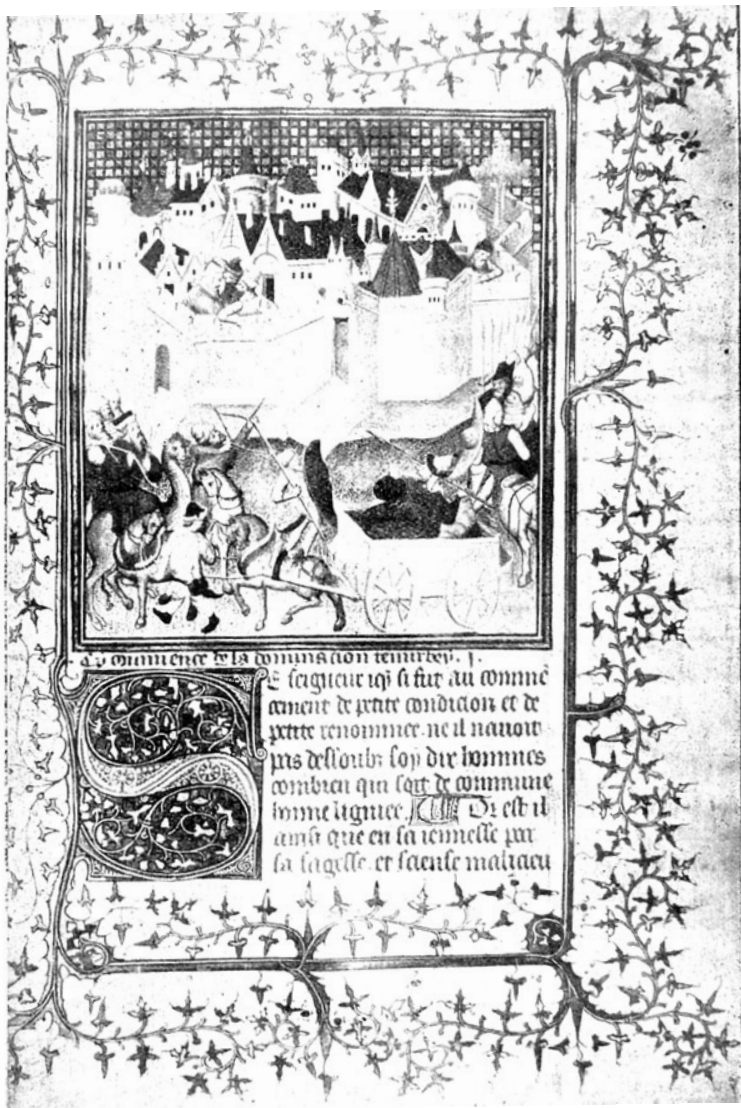 Cy cōmence de la dominacion temurbey. j.
SE seigneur icy si fut au commē
cement de petite condicion et de
petite renommee. ne il nauoit
pas dessoubz soy dix hommes
combien qui soit de commune
bonne lignee. Or est il
ainsi que en sa ieunesse par
sa sagesse. et sciense malicieu